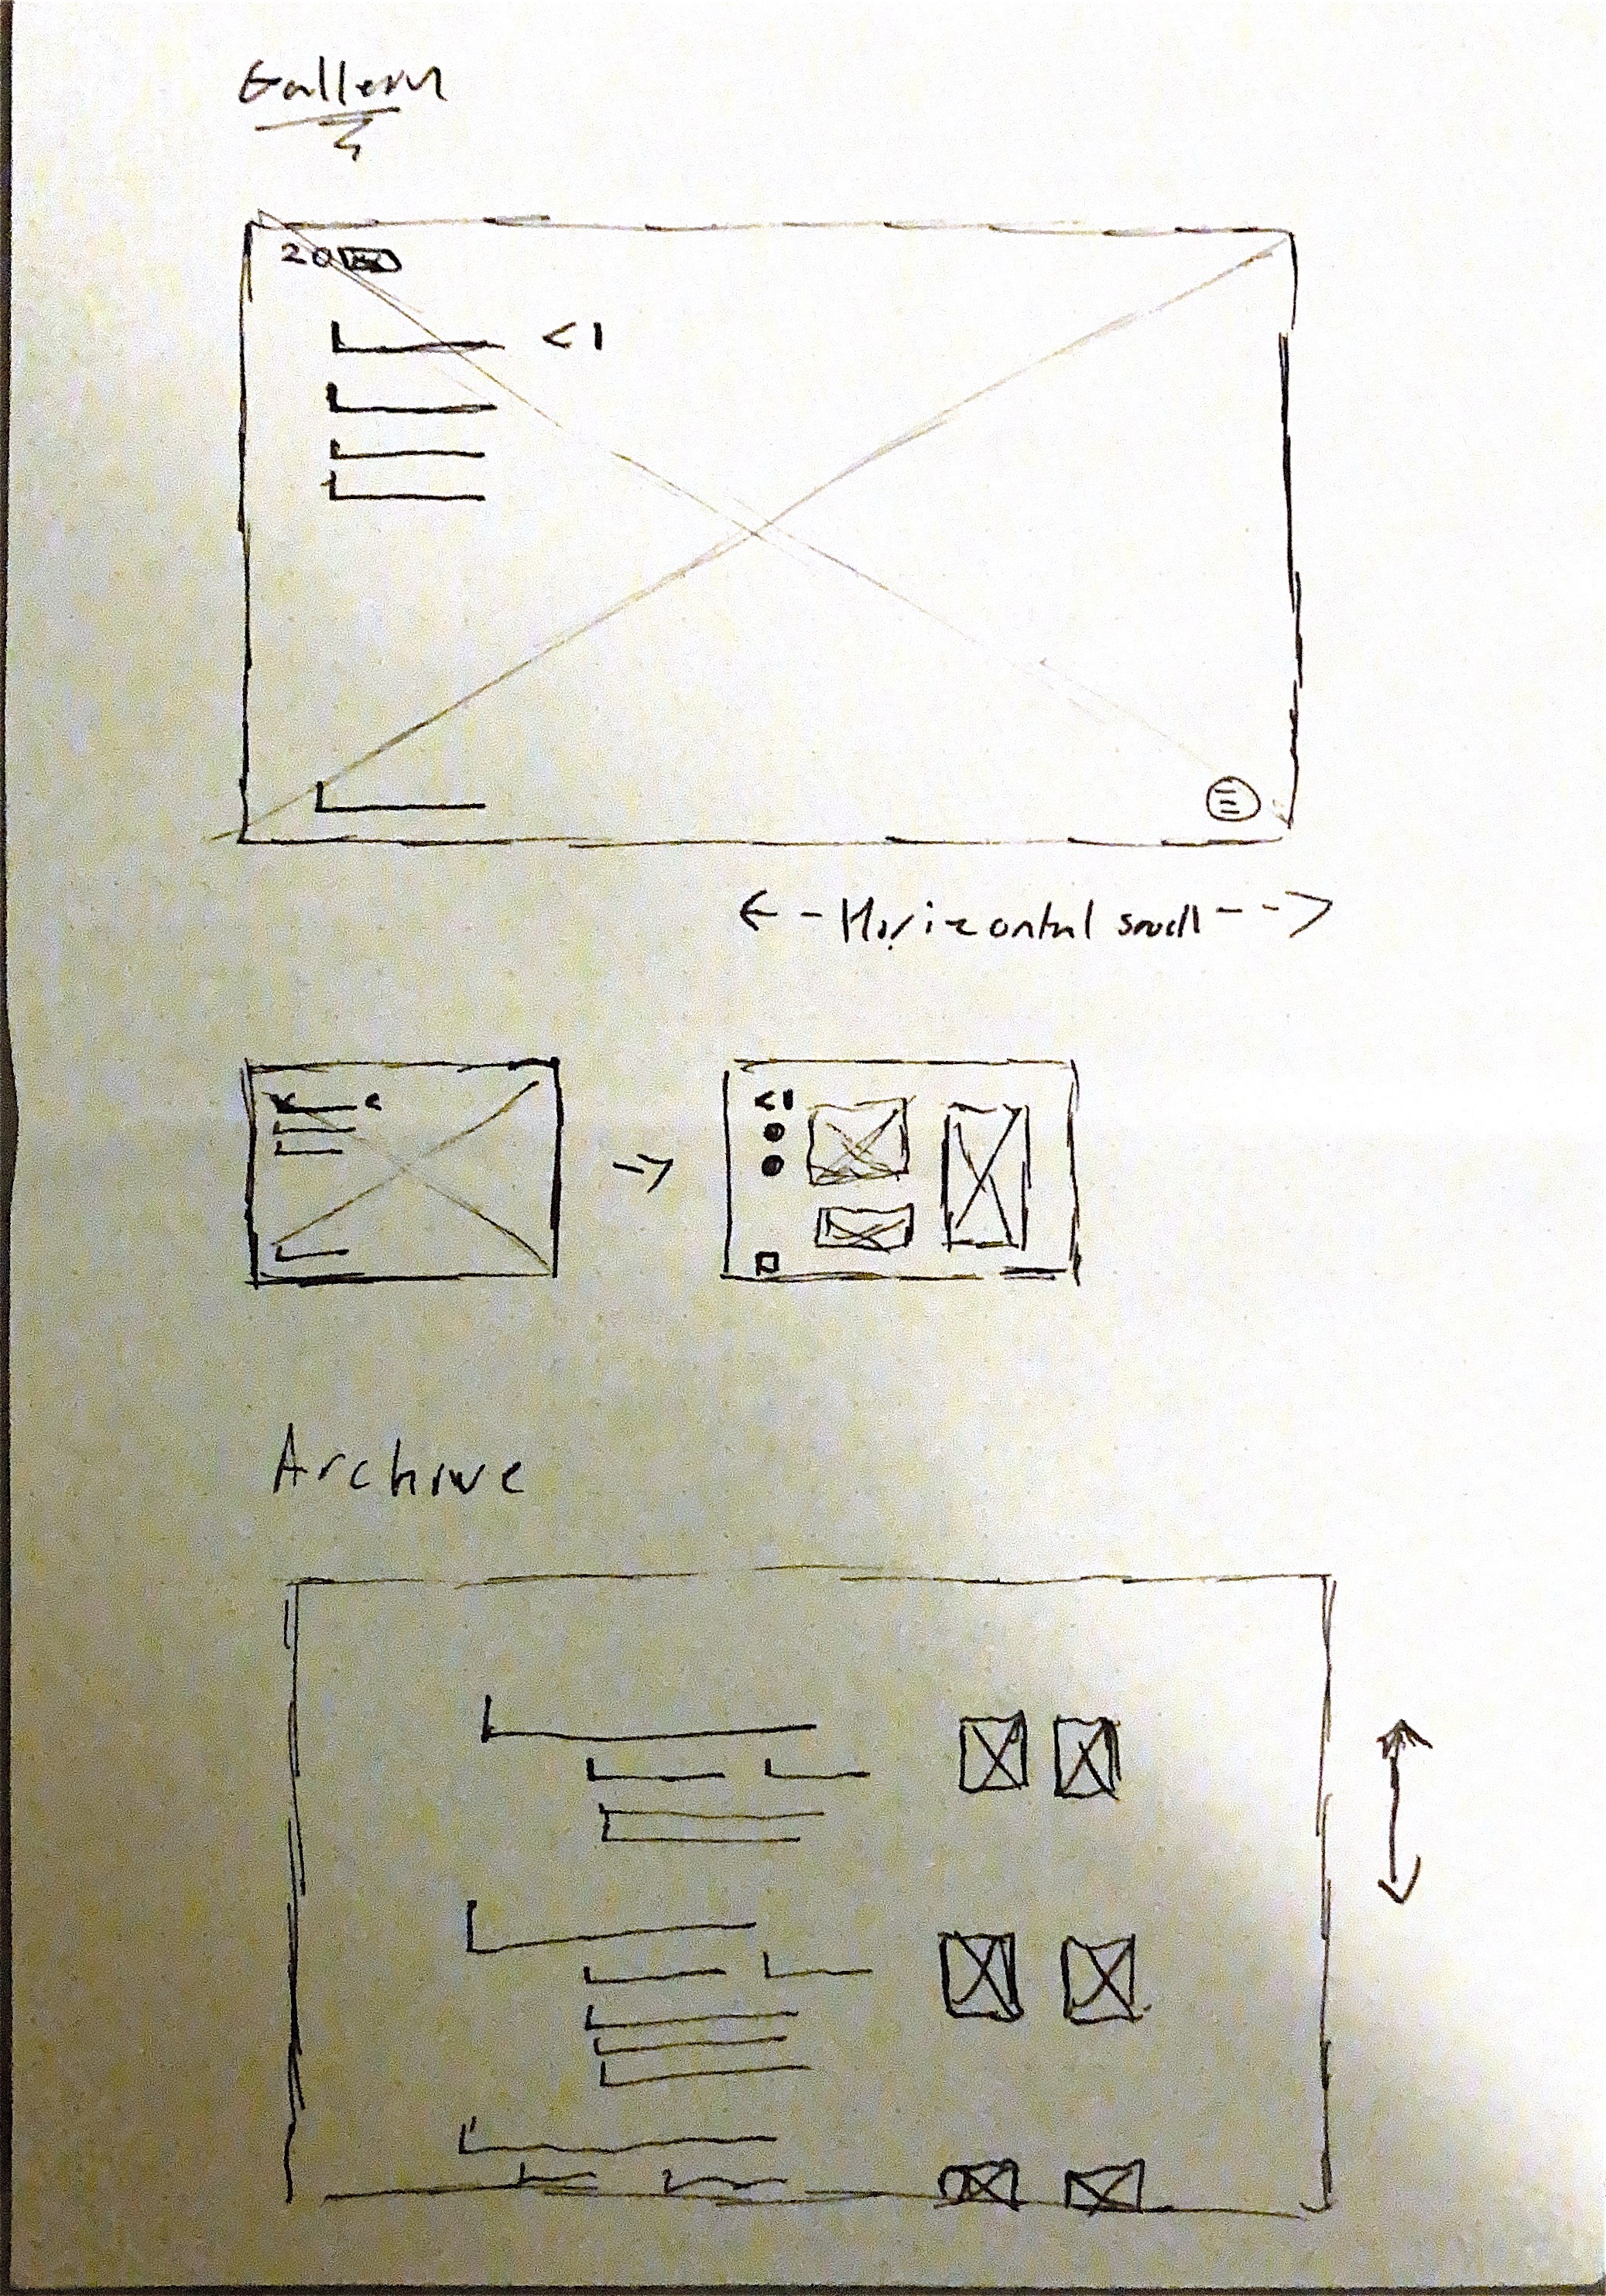 Gallery
20
<1
Horizontal scroll
<
<1
Archive